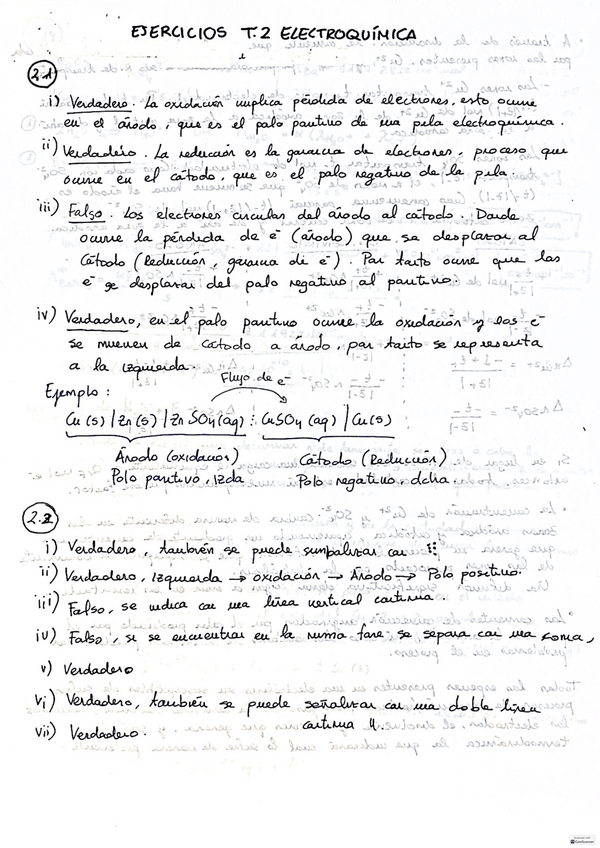 EJERCICIOS T.2 ELECTROQUÍMICA
2.1
i) Verdadero. La oxidación implica pérdida de electrones, esto ocurre
en el ánodo, que es el polo positivo de una pila electroquímica.
ii) Verdadero. La reducción es la ganancia de electrones, proceso que
ocurre en el cátodo, que es el polo negativo de la pila.
iii) Falso. Los electrones circulan del ánodo al cátodo. Donde
ocurre la pérdida de e⁻ (ánodo) que se desplazan al
Cátodo (Reducción, ganancia de e⁻). Por tanto ocurre que los
e⁻ se desplazan del polo negativo al positivo.
iv) Verdadero, en el polo positivo ocurre la oxidación y los e⁻
se mueven de cátodo a ánodo, por tanto se representa
a la izquierda.
Flujo de e⁻
Ejemplo:
Cu (s) / Zn (s) / Zn SO4 (aq) ⋮ CuSO4 (aq) / Cu (s)
Ánodo (oxidación) Cátodo (Reducción)
Polo positivo, Izda Polo negativo, dcha.
2.2
i) Verdadero, también se puede simbolizar con ⋮⋮
ii) Verdadero, Izquierda → oxidación → Ánodo → Polo positivo.
iii) Falso, se indica con una línea vertical continua.
iv) Falso, si se encuentran en la misma fase se separa con una coma,
v) Verdadero
vi) Verdadero, también se puede señalizar con una doble línea
continua //.
vii) Verdadero.